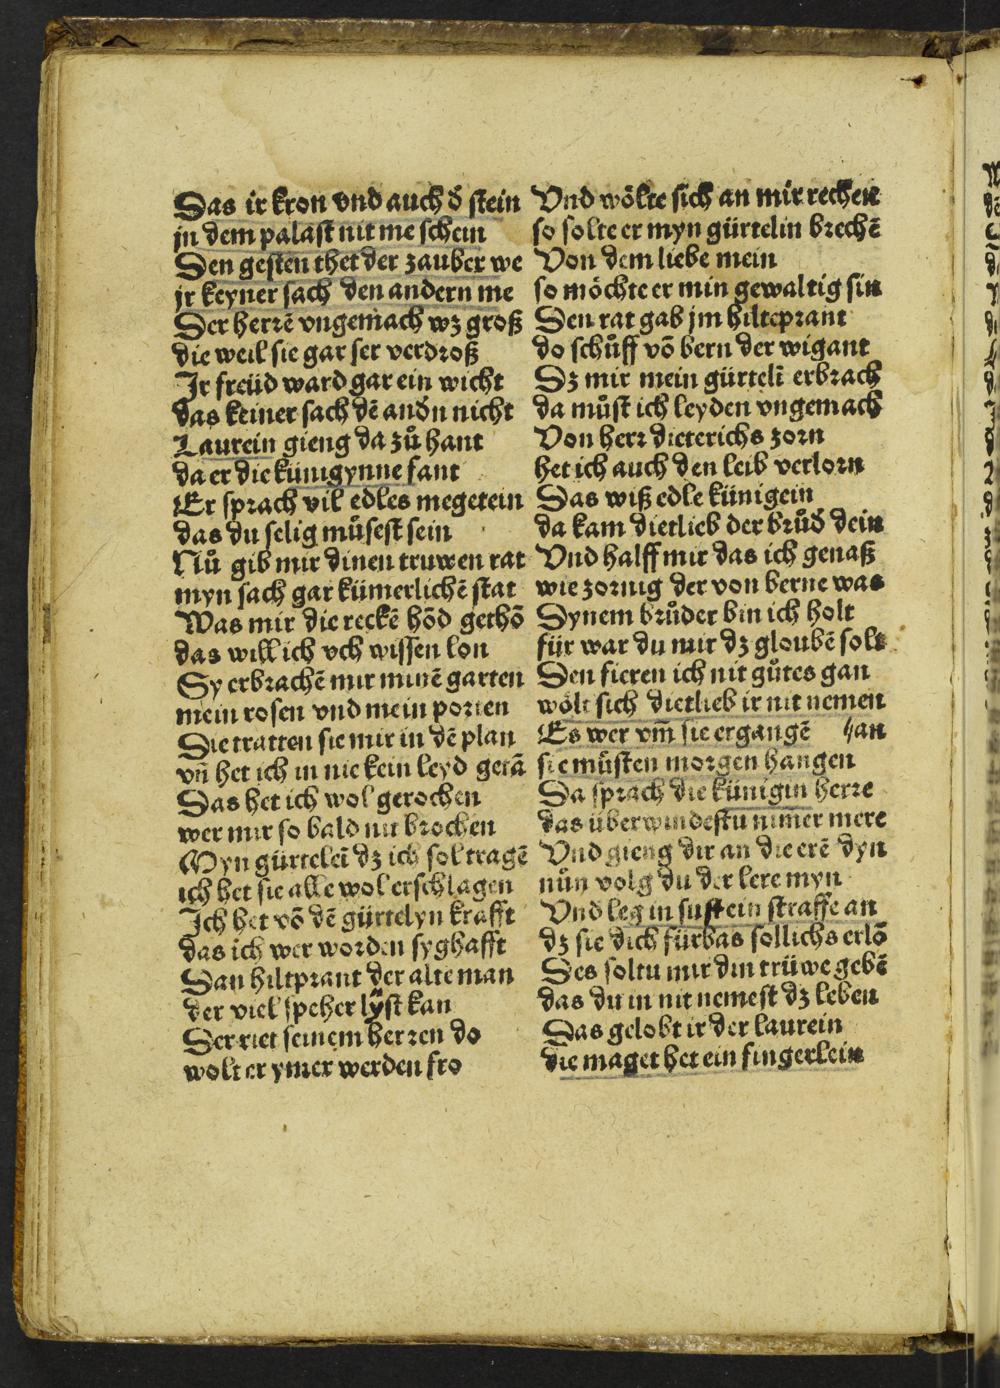 Das ir kron vnd auch đ stein
jn dem palast nit me schein
Den gesten thet der zauber we
jr keyner sach den andern me
Der herrē vngemach wz groß
die weil sie gar ser verdroß
Ir freüd ward gar ein wicht
das keiner sach dē andn nicht
Laurein gieng da zů hant
da er die künigynne fant
Er sprach vil edles megetein
das du selig můsest sein
Nů gib mir dinen truwen rat
myn sach gar kümerlichē stat
Was mir die reckē hōd gethō
das will ich vch wissen lon
Sy erbrachē mir minē garten
mein rosen vnd mein porten
Sie tratten sie mir in dē plan
vn̄ het ich in nie kein leyd getā
Das het ich wol gerochen
wer mir so bald nit brochen
Myn gürteleī dz ich sol tragē
ich het sie alle wol erschlagen
Ich het vō dē gürtelyn krafft
das ich wer worden syghafft
Dan hiltprant der alte man
der viel specher lÿst kan
Der riet seinem herren do
wolt er ymer werden fro
Vnd wölte sich an mir rechen
so solte er myn gürtelin brechē
Von dem liebe mein
so möchte er min gewaltig sin
Den rat gab jm hilteprant
do schůff vō bern der wigant
Dz mir mein gürtelī erbrach
da můst ich leyden vngemach
Von herr dieterichs zorn
het ich auch den leib verlorn
Das wiß edle künigein
da kam dietlieb der brůđ dein
Vnd halff mir das ich genaß
wie zornig der von berne was
Synem brůder bin ich holt
für war du mir dz gloubē solt
Den fieren ich nit gůtes gan
wölt sich dietlieb ir nit nemen
Es wer vm̄ sie ergangē //an
sie můsten morgen hangen
Da sprach die künigin herre
das überwindestu nimer mere
Vnd gieng dir an die erē dyn
nůn volg du der lere myn
Vnd leg in sust ein straffe an
dz sie dich fürbas sollichs erlō
Des soltu mir din trüwe gebē
das du in nit nemest dz leben
Das gelobt ir der laurein
die maget het ein fingerlein